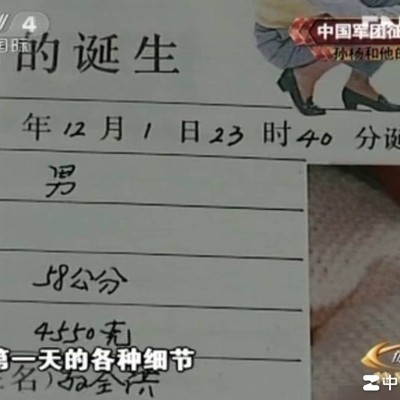 4
国际
中国军团征
孙杨和他的
的诞生
年12月1日23时40分诞
男
58公分
4550克
第一天的各种细节
名)孙全洪
中